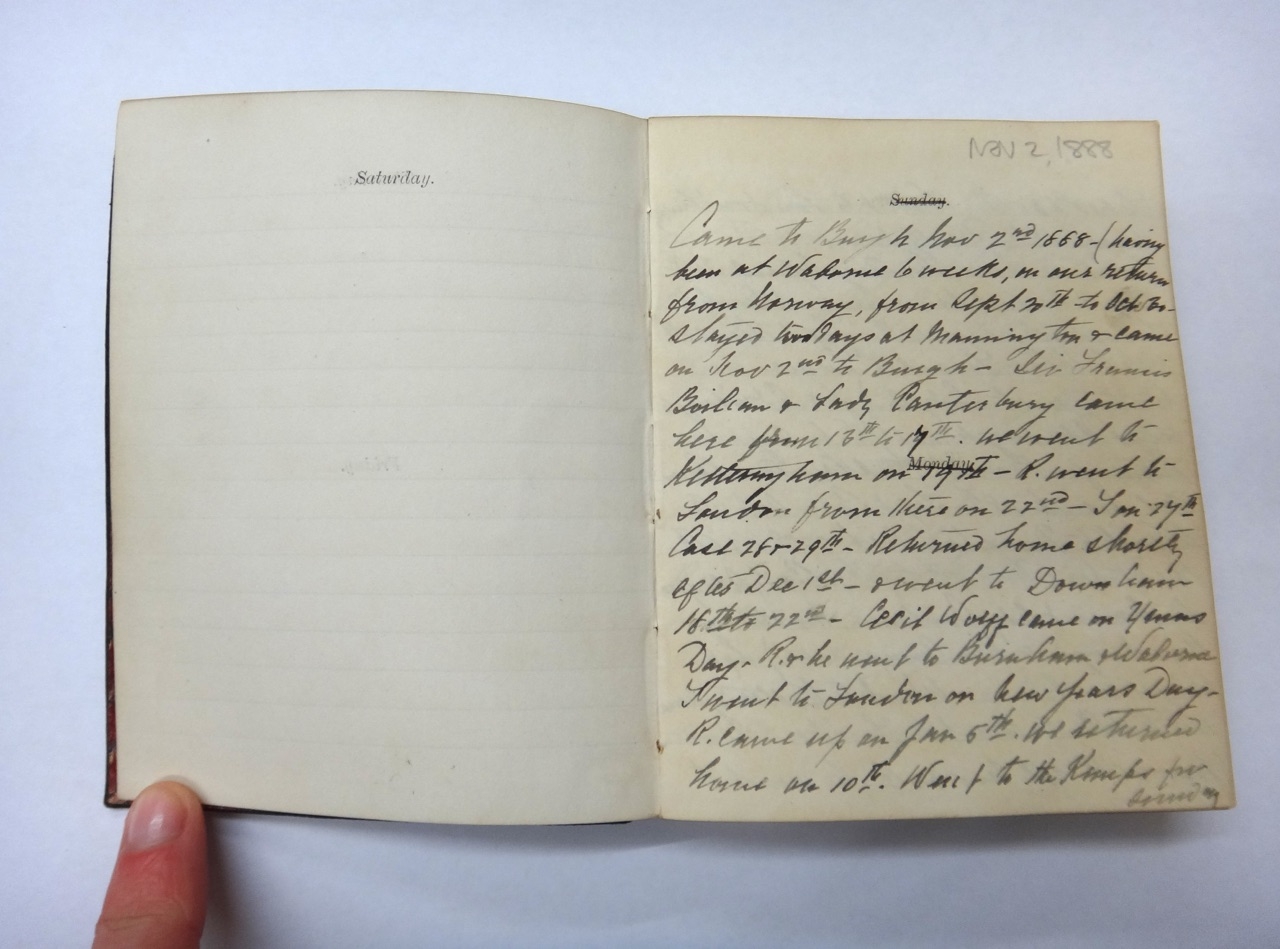 Saturday.
NOV 2, 1888
Sunday.
Came to Burgh Nov 2nd 1888 - (having
been at Waborne 6 weeks, on our return
from Norway, from Sept 20th to Oct 30-
stayed two days at Mannington & came
on Nov 2nd to Burgh - Sir Francis
Boileau & Lady Canterbury came
here from 13th to 17th. we went to
Monday.
Ketteringham on 19th - R. went to
London from there on 22nd - I on 27th
Case 28 & 29th - Returned home shortly
after Dec 1st - & went to Downham
18th to 22nd - Cecil Wolff came on Xmas
Day - R. & he went to Burnham & Waborne
I went to London on New Years Day -
R. came up on Jan 5th. we returned
home on 10th. Went to the Kemps for
Sunday